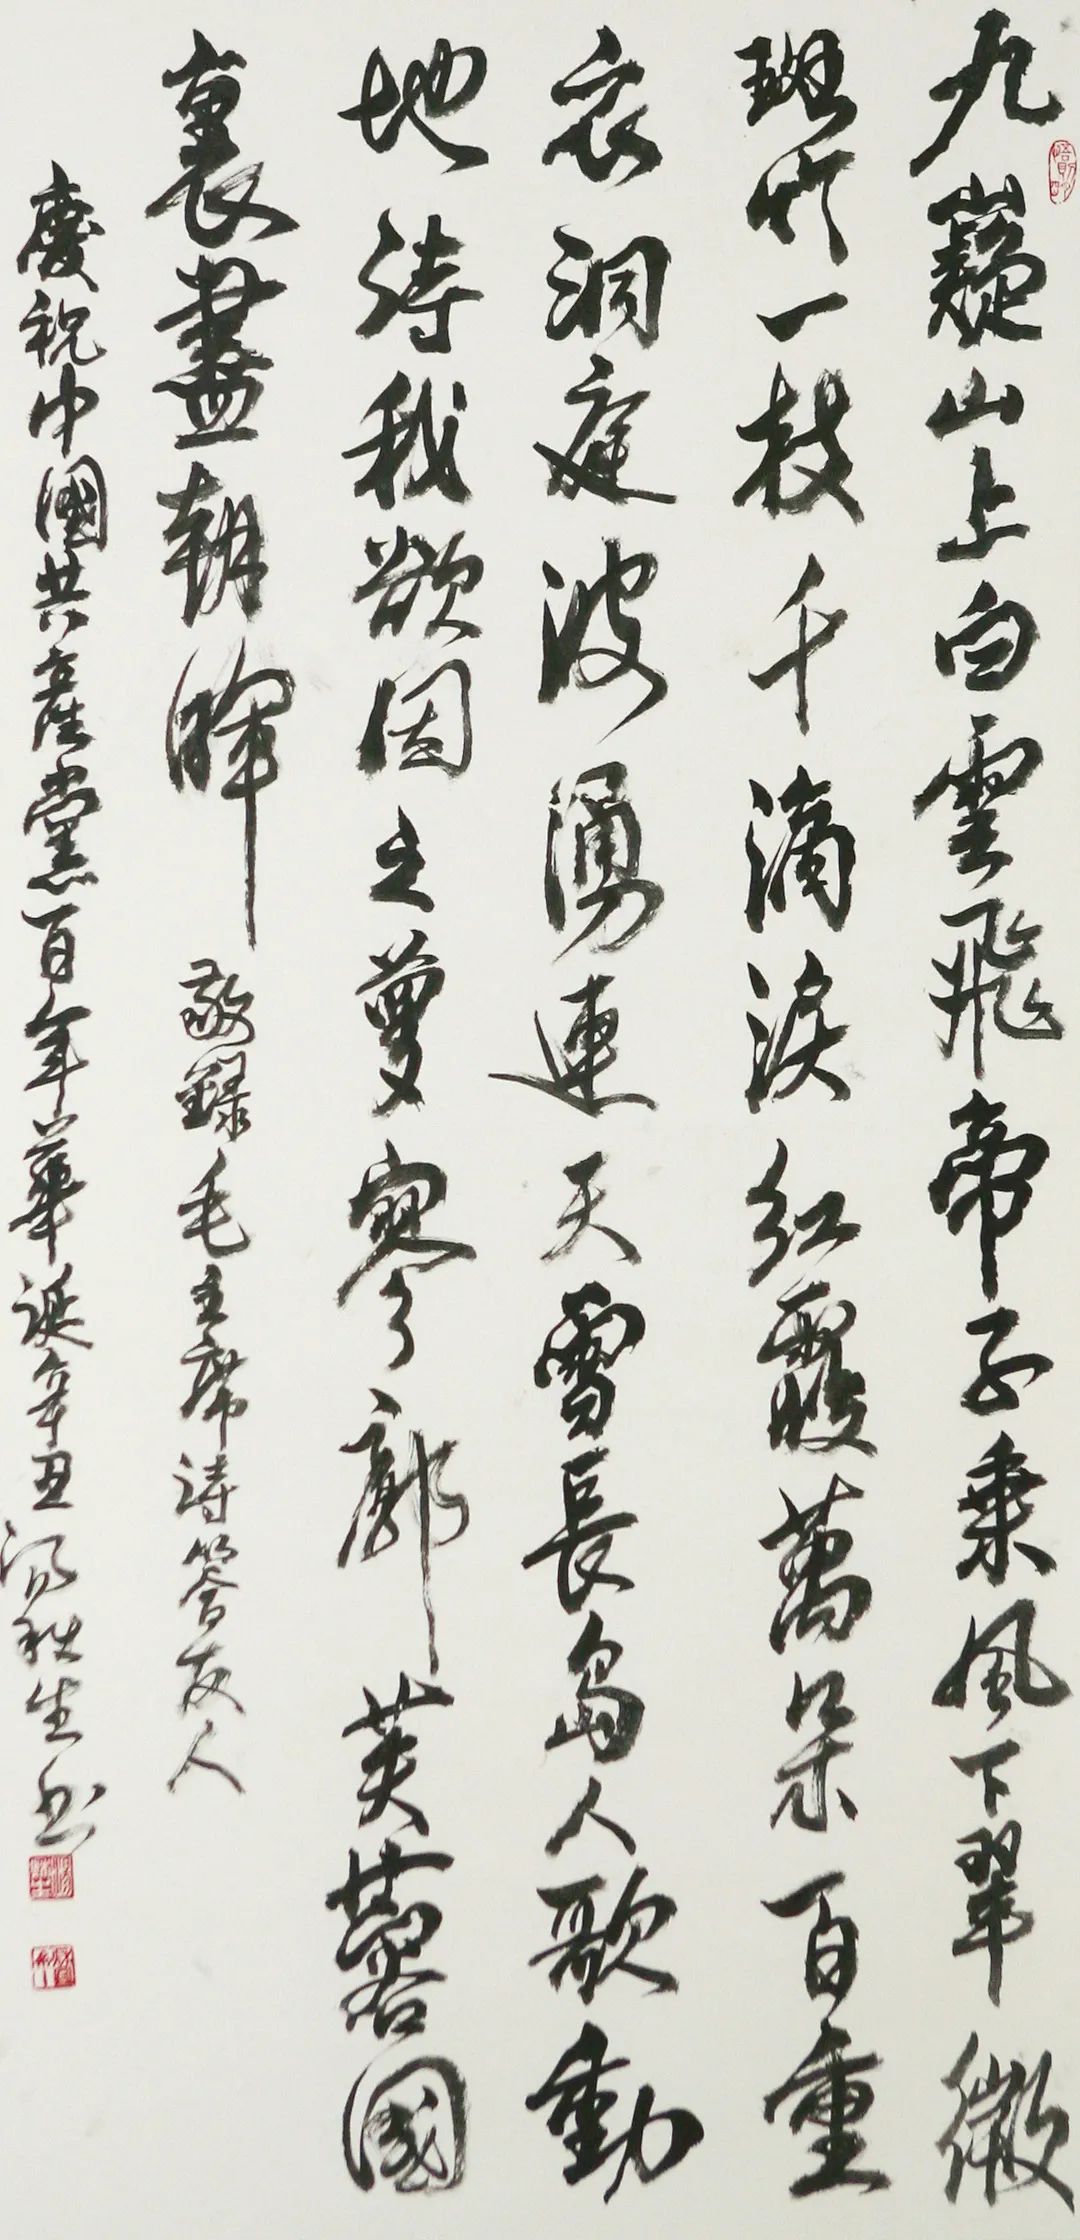 九嶷山上白雲飛帝子乗風下翠微
斑竹一枝千滴淚紅霞萬朵百重
衣洞庭波湧連天雪長島人歌動
地詩我欲因之夢寥廓芙蓉國
裏盡朝暉
敬錄毛主席詩答友人
慶祝中國共產黨百年華誕辛丑湯秋生书